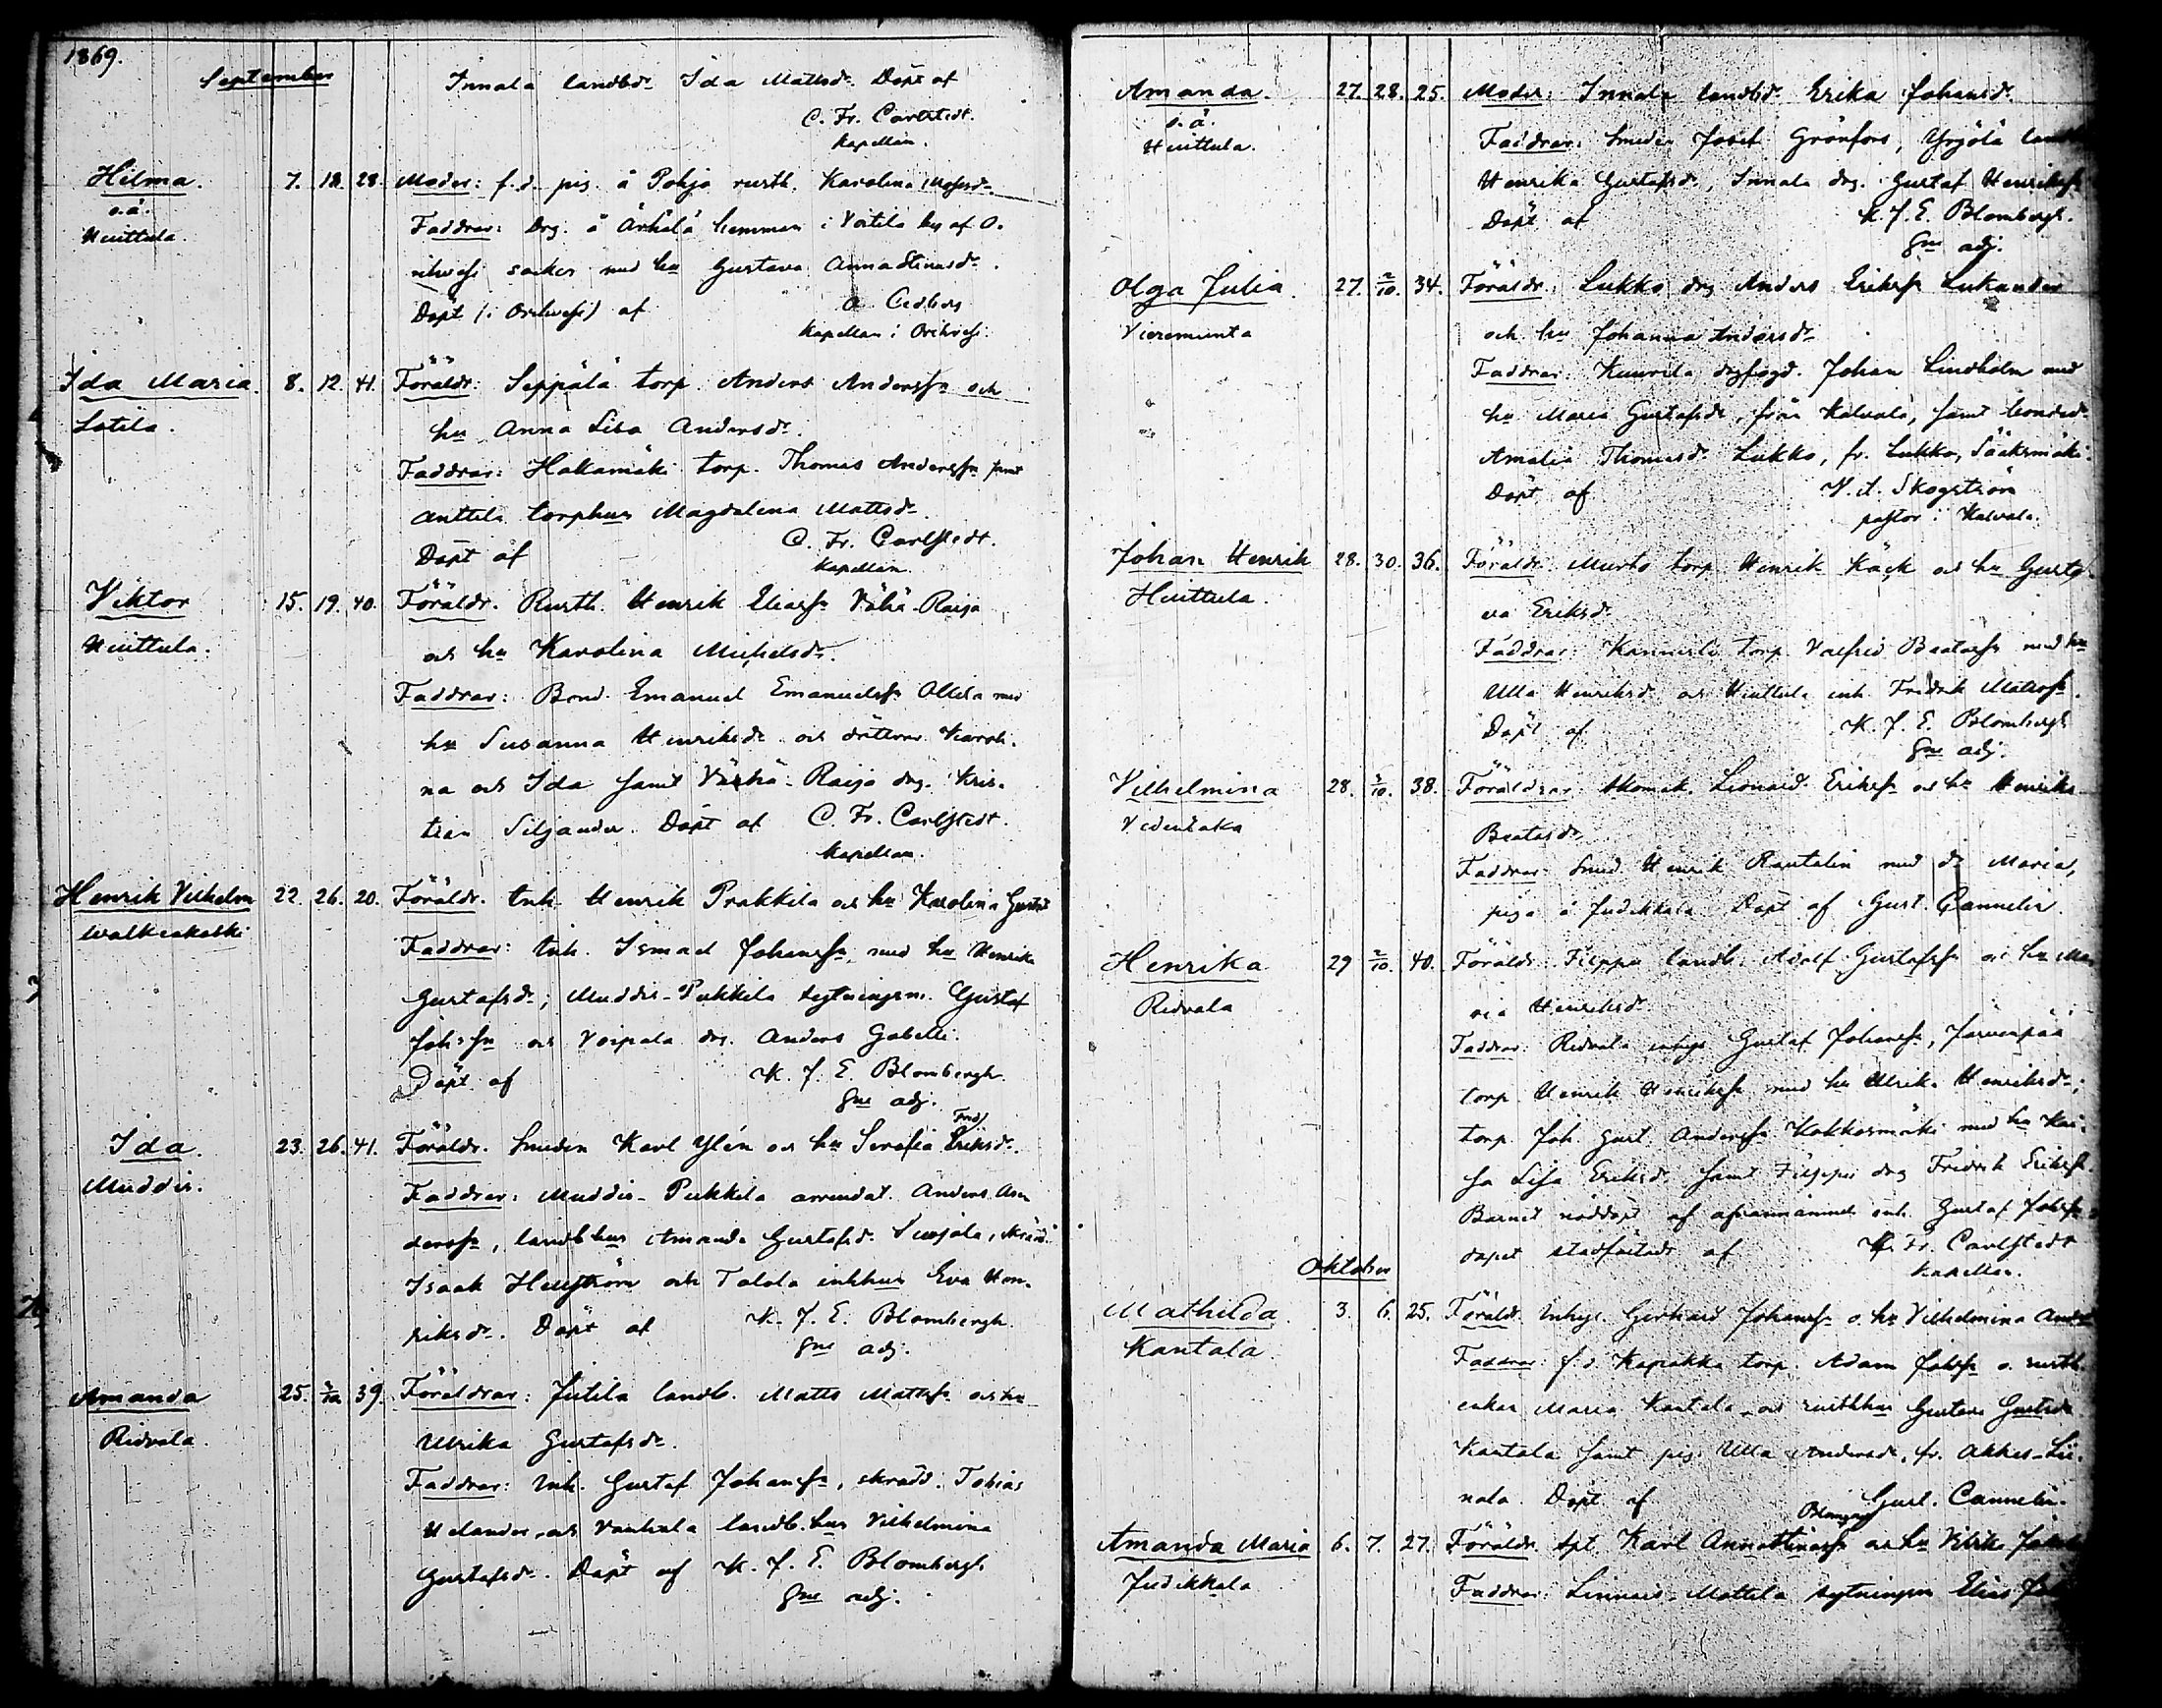 1869.
September
Innala landbd. Ida Mattsd. Döpt af
C. Fr. Carlstedt.
kapellan.
Hilma. 7. 12. 28. Moder: f.d. pig. å Pohja rusth. Karolina
o.ä. Faddrar: Drg. å hemman i Voitila by af O-
Huittula. rihvesi socken med hu Gustava Anna Stinasdr.
Döpt (i Orihvesi) af Cedberg
kapellan i Orihvesi.
Ida Maria. 8. 12. 41. Föräldr: Seppälä torp. Anders Andersson och
Lotila. hu Anna Lisa Andersdr.
Faddrar: Hakamäki torp. Thomas Andersson samt
Anttila torphus Magdalena Mattsdr.
Döpt af C. Fr. Carlstedt.
kapellan.
Viktor 15. 19. 40. Föräldr. Rusth. Henrik Eliasson Vähä-Raija
Huittula. och hu Karolina Michelsdr.
Faddrar: Bond. Emanuel Emanuelsson Ollila med
hu Susanna Henriksdr och döttrar Karoli-
na och Ida samt Vähä-Raija drg. Kris-
tian Siljander. Döpt af C. Fr. Carlstedt.
kapellan.
Henrik Vilhelm 22. 26. 20. Föräldr. Inh. Henrik Prakkila och hu Karolina Gustafsd
Walkeakoski Faddrar: Inh. Ismael Johansson med hu Henrika
Gustafsdr; Muddis-Pukkila sytningsm. Gustaf
Johsson och Voipala drg. Anders Gabelli.
Döpt af K. J. E. Blombergh.
gne adj.
Ida. 23. 26. 41. Föräldr. Smeden Karl Ylén och hu Serafia Eriksdr.
Muddis. Faddrar: Muddis-Pukkila arrendat. Anders An-
dersson, landb.hus Amanda Gustafsd. Suojala,
Isaak Hellström och Talola inhhus Eva Hen-
riksdr. Döpt af K. J. E. Blombergh.
gne adj.
Amanda 25. 3/10 39. Föräldrar: Jutila landb. Matts Mattsson och hu
Ridvala. Ulrika Gustafsdr.
Faddrar: Inh. Gustaf Johansson, skrädd. Tobias
Helander och landb.hus Vilhelmina
Gustafsdr. Döpt af K. J. E. Blombergh.
gne adj.
Amanda. 27. 28. 25. Moder: Innala landbd. Erika Johansd.
o.ä. Faddrar: Smeden Josef Grönfors, Yrjölä
Huittula. Henrika Gustafsd., Innala drg. Gustaf Henriksson
Döpt af K. J. E. Blombergh.
gne adj.
Olga Julia. 27. 2/10. 34. Föräldr: Lukko drg Anders Eriksson Lukander
Vieremunta och hu Johanna Andersdr.
Faddrar: Johan Lindholm med
hu Maria Gustafsdr, från Kalvola, samt bonded.
Amalia Thomasd. Lukko, fr. Lukko, Sääksmäki.
Döpt af Skogström
pastor i Kalvola.
Johan Henrik 28. 30. 36. Föräldr. Murto torp Henrik Käck och hu Gusta-
Huittula. va Eriksd.
Faddrar: torp. Valfrid med hu
Ulla Henriksd. och Huittula inh. Fredrik Mattsson.
Döpt af K. J. E. Blombergh
gne adj.
Vilhelmina 28. 3/10. 38. Föräldrar: skomak. Leonard Eriksson och hu Henrika
Vedentaka Beatasdr.
Faddrar: Smed Henrik Rantalin med dr Maria,
piga å Judikkala. Döpt af Gust. Cannelin.
Henrika 29 2/10. 40. Föräldr. Filppu landb. Adolf Gustafsson och hu Ma-
Ridvala ria Henriksd.
Faddrar: Ridvala inhys Gustaf Johansson, Järvenpää
torp. Henrik Henriksson med hu Ulrika Henriksdr;
torp. Joh Gust. Andersson Kokkosmäki med hu Kai-
sa Lisa Eriksd. samt Filppu drg Fredrik Eriksson.
Barnet nöddöpt af inh. Gustaf Johsson
dopet stadfästadt af Fr. Carlstedt
kapellan.
Oktober
Mathilda 3. 6. 25. Föräld. inhys. Gerhard Johansson o. hu Vilhelmina
Kantala. Faddrar: f.d. Kapakka torp. Adam Johsson o. rusth.
enkan Maria Kantala och rusthhus Gustava
Kantala samt pig. Ulla Andersd., fr. Akkas-Lii-
nala. Döpt af Gust. Cannelin.
Amanda Maria 6. 7. 27. Föräldr. Karl Annastinasson och hu
Judikkala Faddrar: Mattila sytningsm Elias